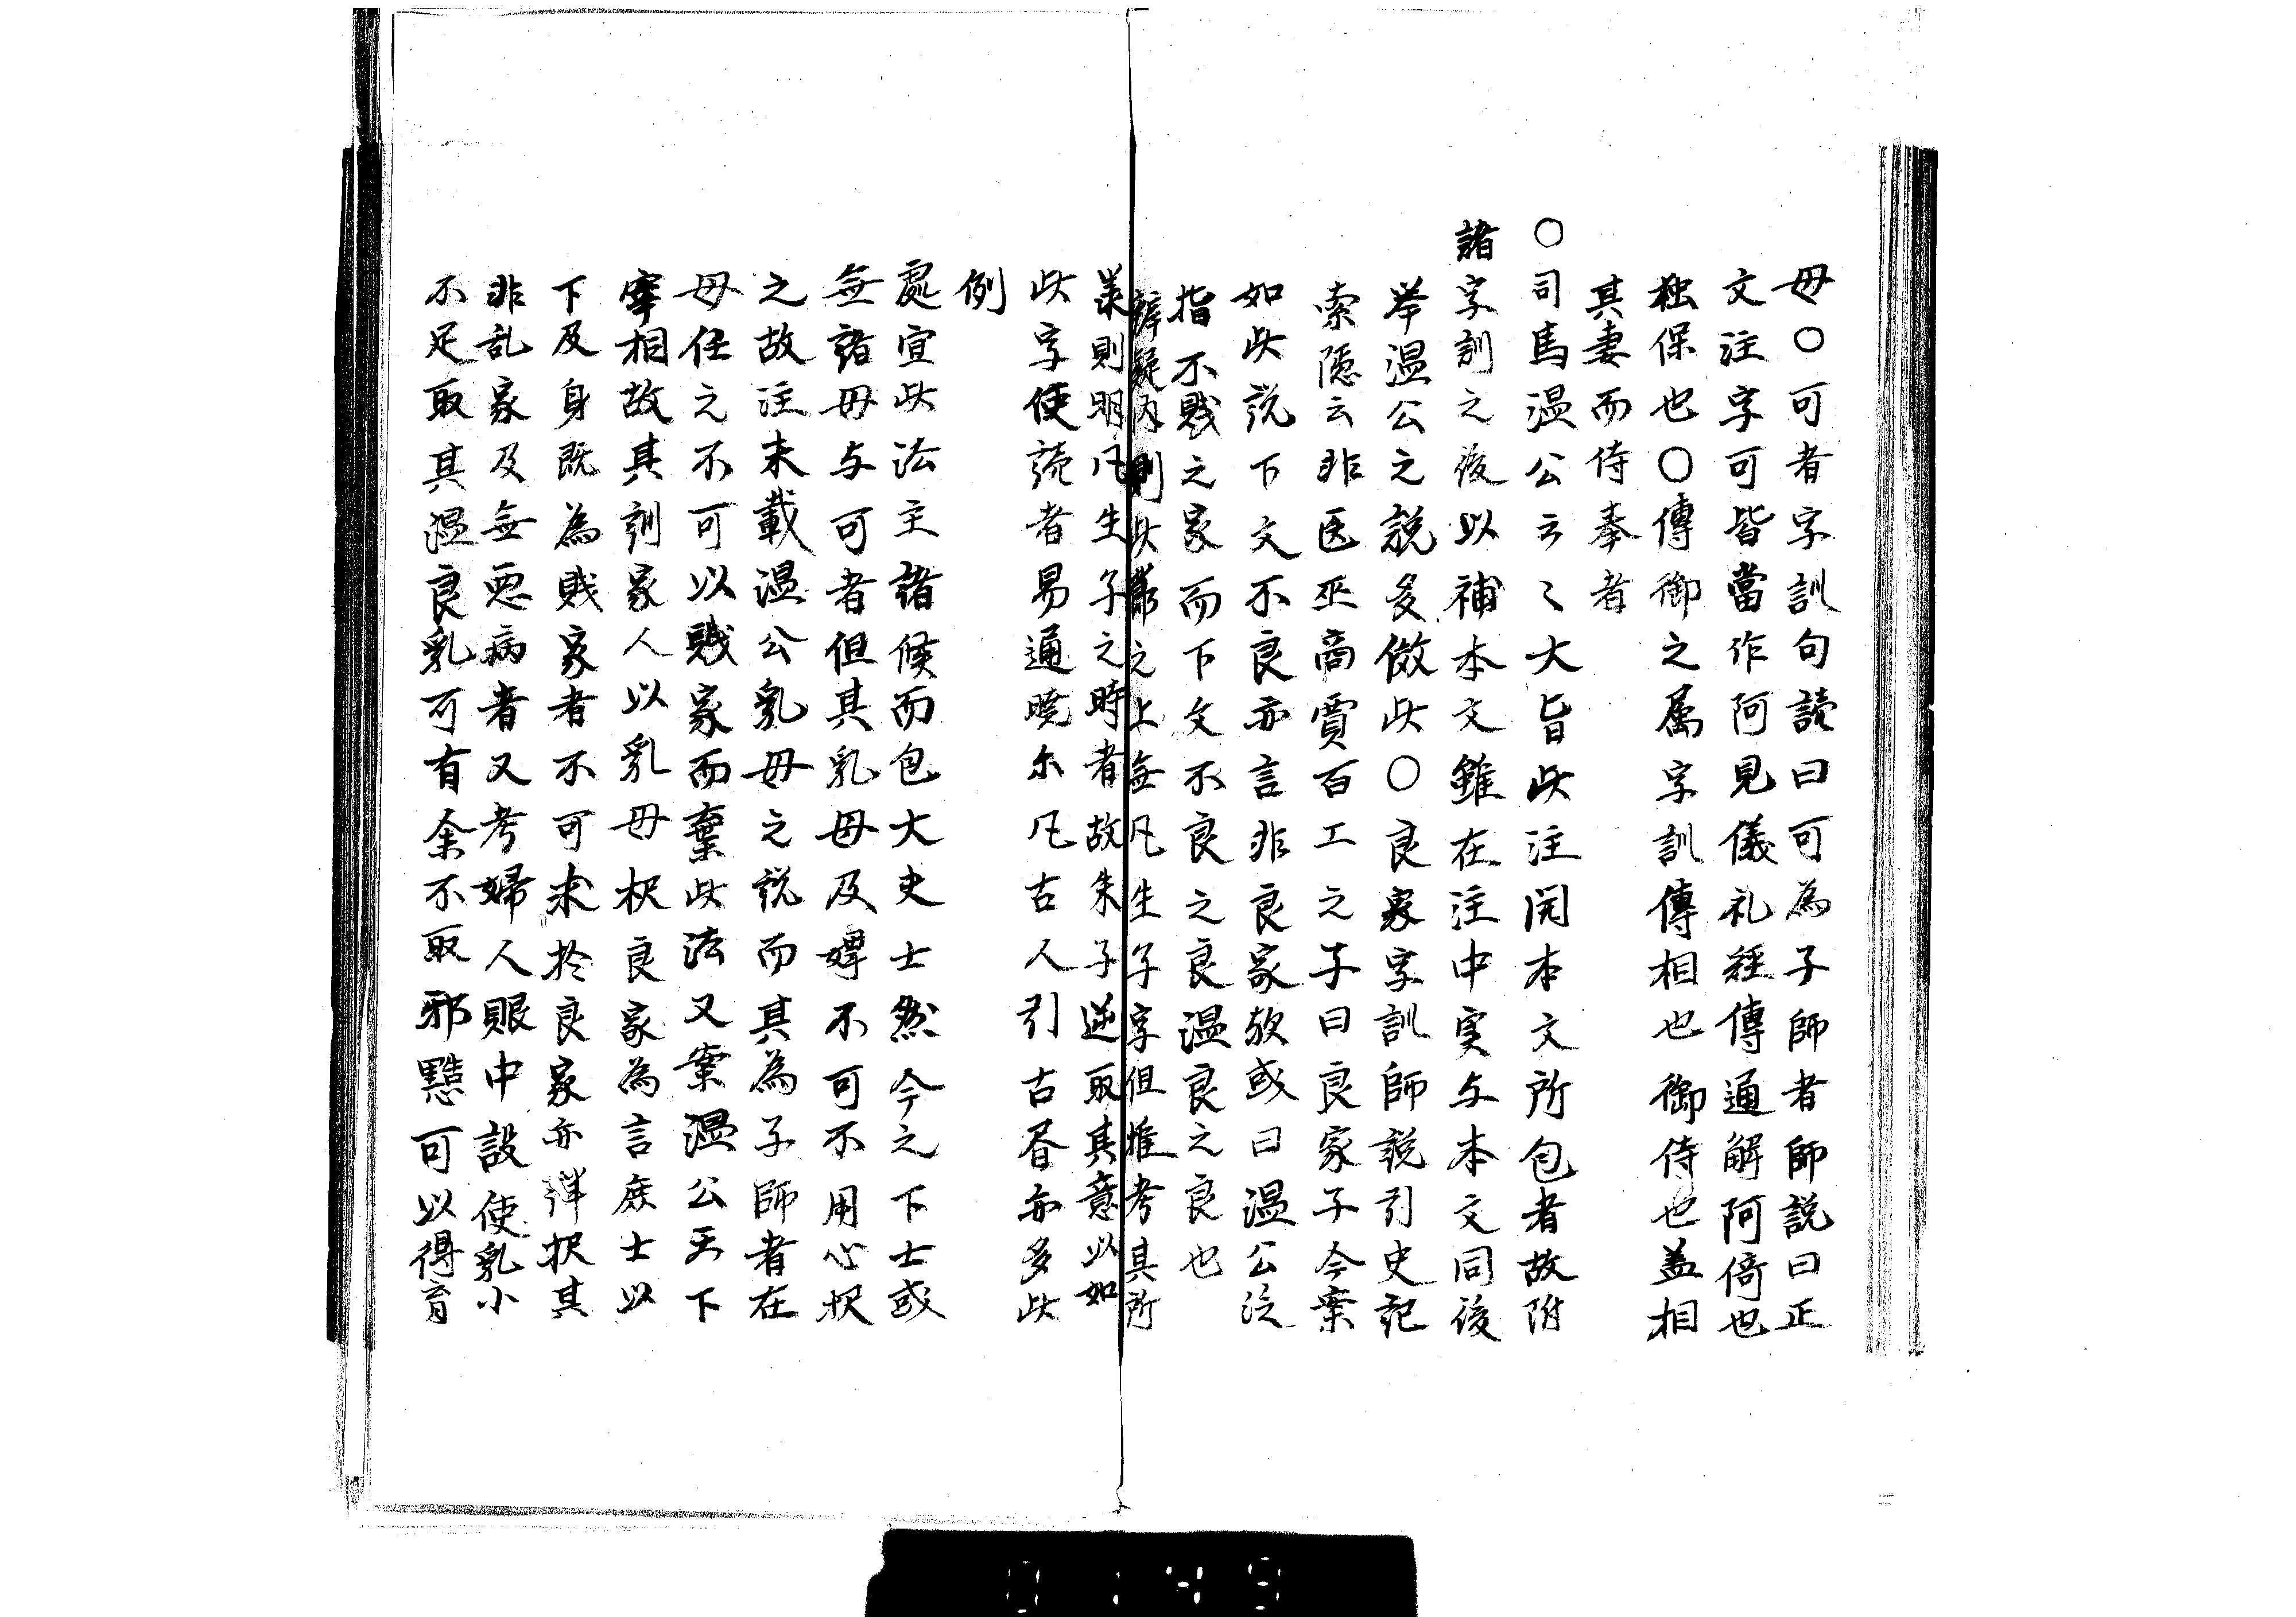 毋〇可者字訓句読曰可為子師者師説曰正
文注字可皆當作阿見儀礼経傳通解阿倚也
独保也〇傳御之属字訓傳相也御侍也盖相
其妻而侍奉者
〇司馬温公云々大旨此注関本文所包者故附
諸字訓之後以補本文雖在注中実与本文同後
举温公之説多倣此〇良家字訓師説引史記
索隠云非医巫商賈百工之子曰良家子今案
如此説下文不良亦言非良家欤或曰温公泛
指不賎之家而下文不良之良温良之良也
辨疑内則此節之上無凡生子字但推考其所
義則明凡生子之時者故朱子逆取其意以如
此字使読者易通暁尓凡古人引古昏亦多此
例
處宣此法主諸候而包大史士然今之下士或
無諸母与可者但其乳母及婢不可不用心択
之故注末載温公乳母之説而其為子師者在
毋任之不可以賎家而棄此法又案温公天下
宰相故其訓家人以乳母択良家為言庶士以
下及身既為賎家者不可求於良家亦詳択其
非乱家及無悪病者又考婦人賬中設使乳小
不足取其温良乳可有余不取邪黠可以得育